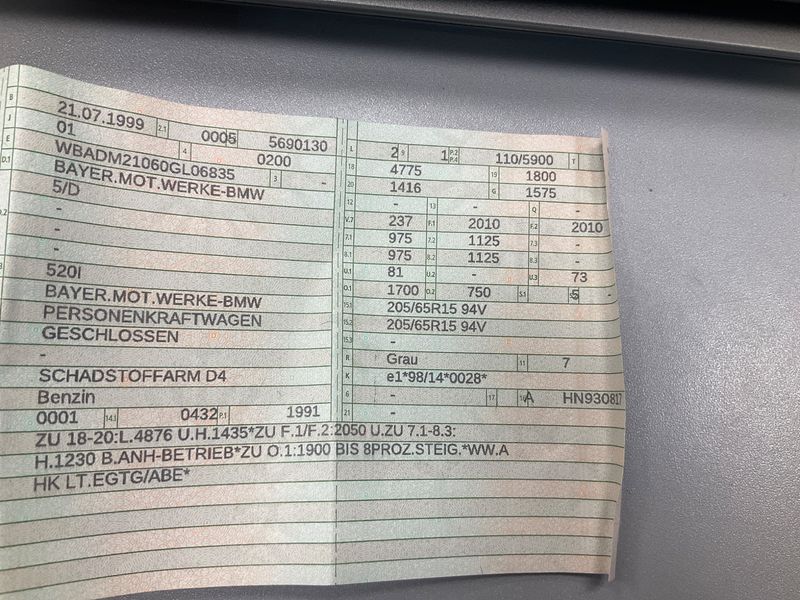 B 21.07.1999 2.1 0005 5690130
J 01 4 0200
E WBADM21060GL06835 3 -
D.1 BAYER.MOT.WERKE-BMW
5/D
-
-
-
520I
BAYER.MOT.WERKE-BMW
PERSONENKRAFTWAGEN
GESCHLOSSEN
-
SCHADSTOFFARM D4
Benzin
0001 14.1 0432 P.1 1991
L 2 9 1 P.2 P.4 110/5900 T
18 4775 19 1800
20 1416 G 1575
12 - 13 - Q -
V.7 237 F.1 2010 F.2 2010
7.1 975 7.2 1125 7.3 -
8.1 975 8.2 1125 8.3 -
U.1 81 U.2 - U.3 73
O.1 1700 O.2 750 S.1 5 -
15.1 205/65R15 94V
15.2 205/65R15 94V
15.3 -
R Grau 11 7
K e1*98/14*0028*
6 - 17 16 A HN930817
21 -
ZU 18-20:L.4876 U.H.1435*ZU F.1/F.2:2050 U.ZU 7.1-8.3:
H.1230 B.ANH-BETRIEB*ZU O.1:1900 BIS 8PROZ.STEIG.*WW.A
HK LT.EGTG/ABE*